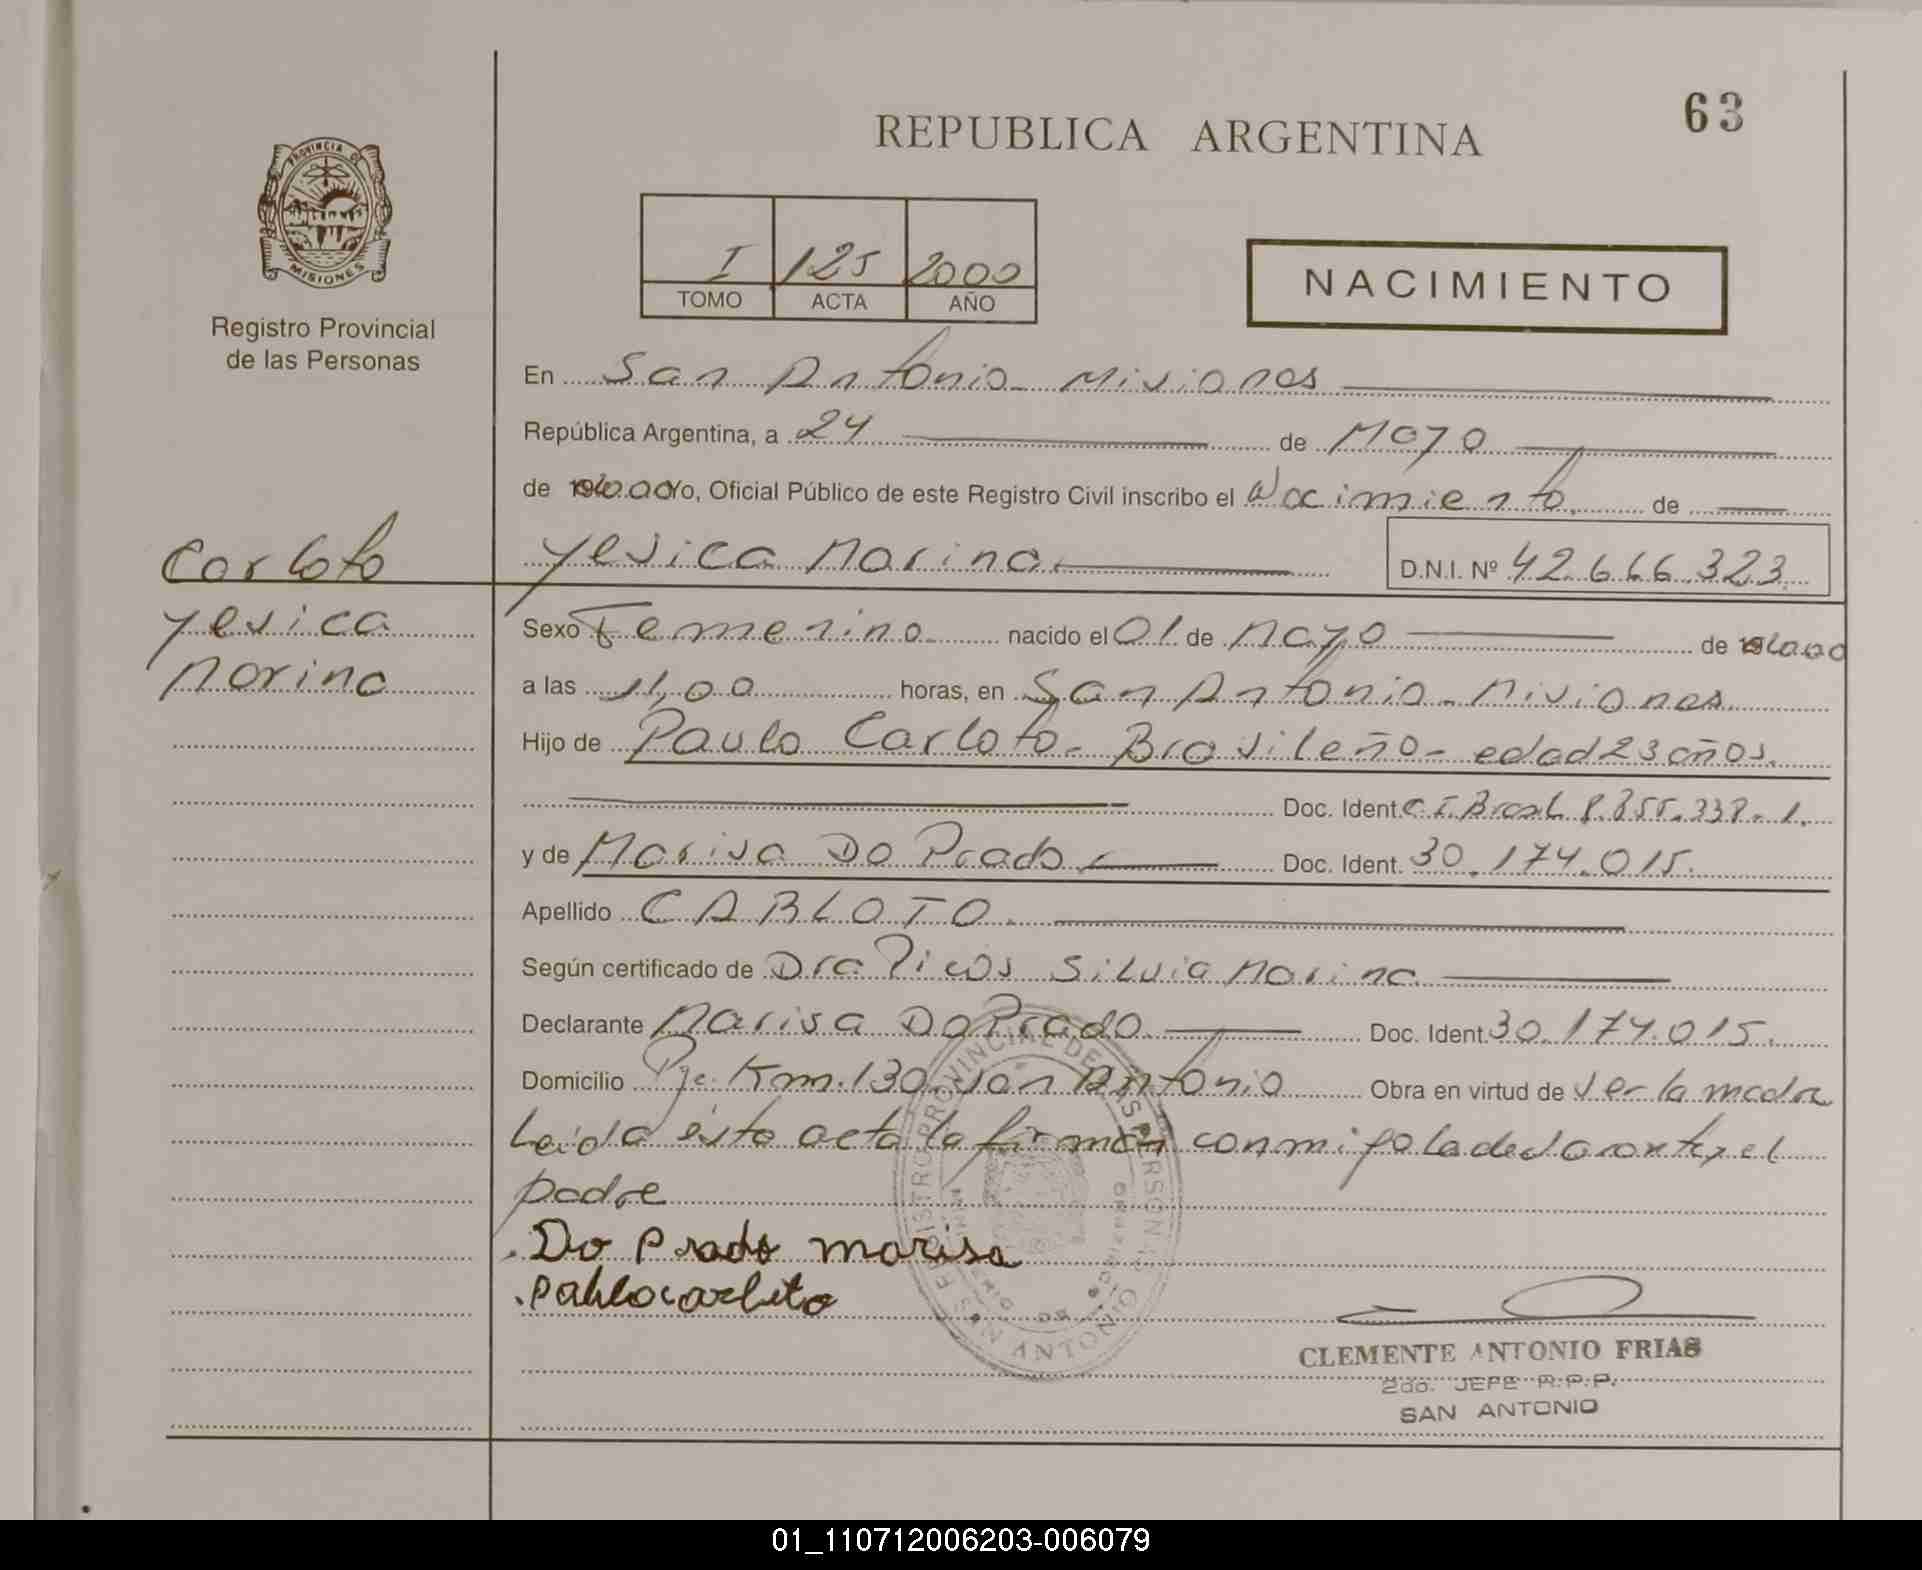 63
REPUBLICA ARGENTINA
PROVINCIA DE
MISIONES
Registro Provincial
de las Personas
I 125 2000
TOMO ACTA AÑO
NACIMIENTO
En San Antonio - Misiones
República Argentina, a 24 de Mayo
de 2000 Yo, Oficial Público de este Registro Civil inscribo el Nacimiento de
Yesica Marina D.N.I. Nº 42.666.323
Carloto
Yesica
Marina
Sexo Femenino nacido el 01 de Mayo de 2000
a las 11,00 horas, en San Antonio - Misiones
Hijo de Paulo Carloto - Brasileño - edad 23 años.
Doc. Ident. C.I. Brasil 8.855.338-1.
y de Marisa Do Prado Doc. Ident. 30.174.015.
Apellido CARLOTO
Según certificado de Dra Silvia Marina
Declarante Marisa Do Prado Doc. Ident. 30.174.015.
Domicilio Pje. Km. 130. San Antonio Obra en virtud de ser la madre
Leida ésta acta la firman conmigo la declarante y el
padre
Do Prado marisa
Pablo carloto
REGISTRO PROVINCIAL DE LAS PERSONAS
SAN ANTONIO
CLEMENTE ANTONIO FRIAS
2do. JEFE R.P.P.
SAN ANTONIO
01_110712006203-006079